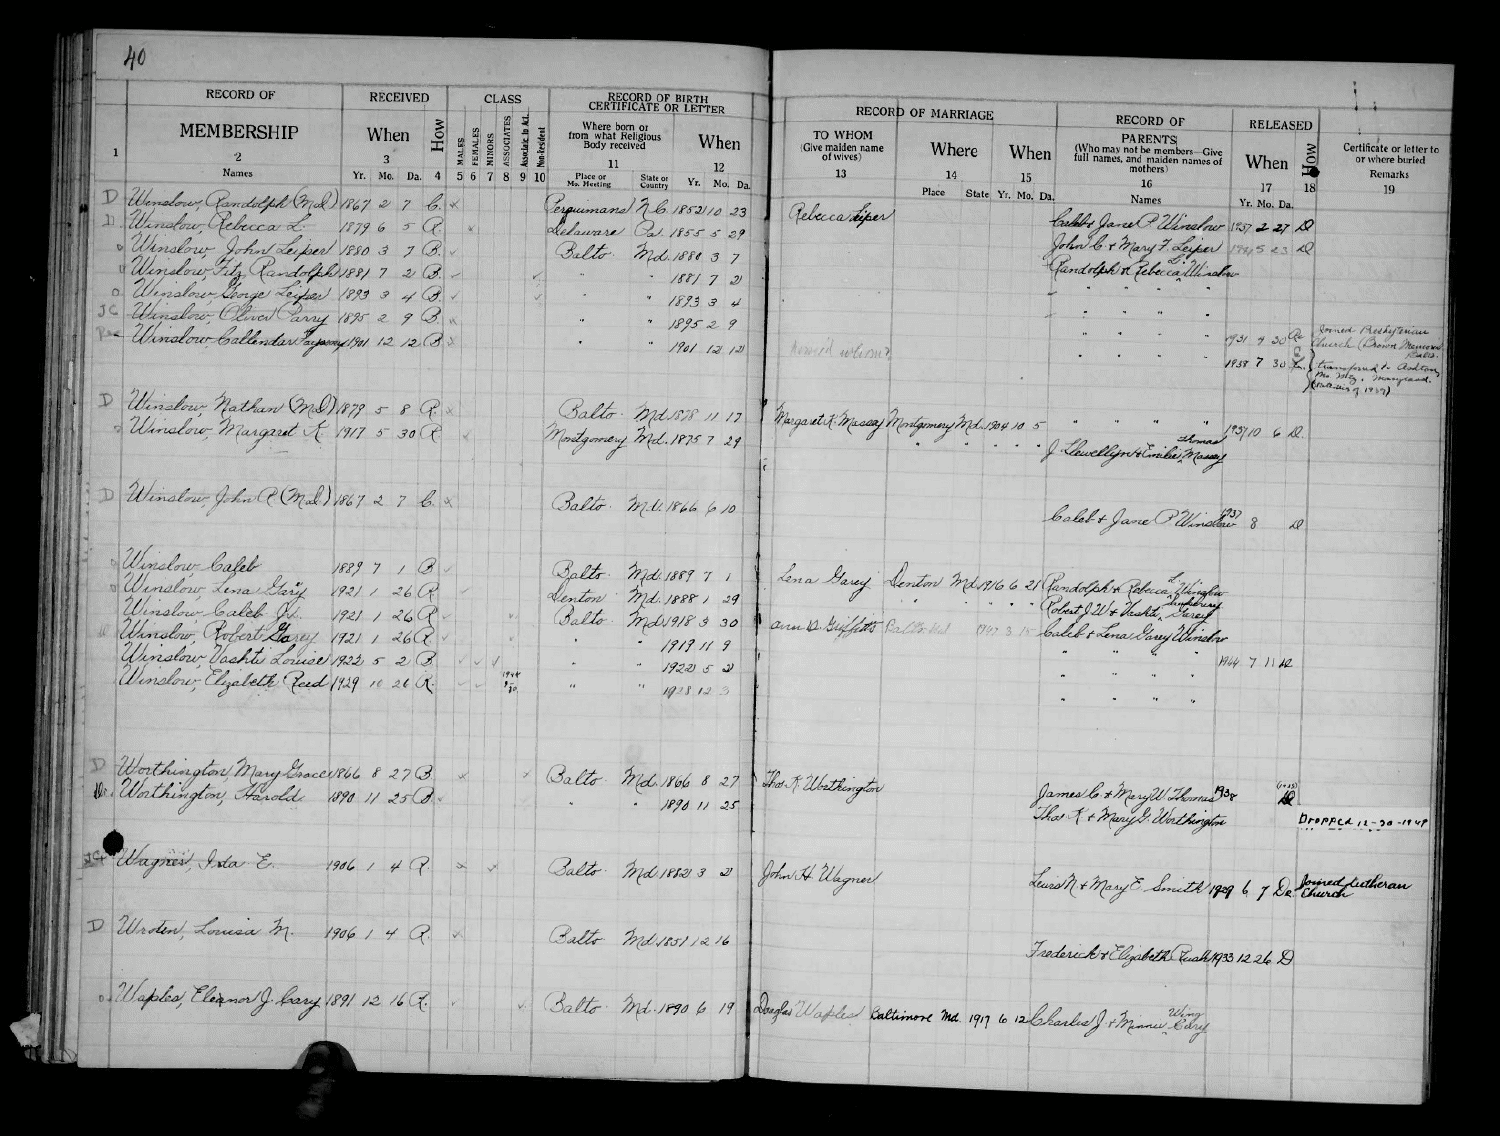 40
RECORD OF MEMBERSHIP
RECEIVED
CLASS
RECORD OF BIRTH
CERTIFICATE OR LETTER
RECORD OF MARRIAGE
RECORD OF PARENTS
RELEASED
1
2
Names
When
3
Yr. Mo. Da.
How
4
MALES 5
FEMALES 6
MINORS 7
ASSOCIATES 8
Associate. In Act. 9
Non-Resident 10
Where born or
from what Religious
Body received
11
Place or
Mo. Meeting
State or
Country
When
12
Yr. Mo. Da.
TO WHOM
(Give maiden name
of wives)
13
Where
14
Place State
When
15
Yr. Mo. Da.
(Who may not be members—Give
full names, and maiden names of
mothers)
16
Names
When
17
Yr. Mo. Da.
How
18
Certificate or letter to
or where buried
Remarks
19
D Winslow, Randolph (Md) 1867 2 7 C. Perquimans N.C. 1852 10 23 Rebecca Leiper Caleb & Jane P Winslow 1937 2 27 D
D Winslow, Rebecca L. 1879 6 5 R. Delaware Pa. 1855 5 29 John C & Mary F. Leiper 5 23 D
Winslow, John Leiper 1880 3 7 B. Balto. Md. 1880 3 7 Randolph & Rebecca L. Winslow
Winslow, Fitz Randolph 1881 7 2 B. " " 1881 7 2 " " " "
Winslow, George Leiper 1893 3 4 B. " " 1893 3 4 " " " "
JC Winslow, Oliver Parry 1895 2 9 B. " " 1895 2 9 " " " " 1931 9 30 Joined Presbyterian Church (Brown Memorial Balto.
Winslow Callendar 1901 12 12 B " " 1901 12 12 Married whom? " " " " 1938 7 30 transferred to Ashton, Mo. Mtg. Maryland.
D Winslow, Nathan (Md) 1879 5 8 R. Balto. Md. 1878 11 17 Margaret K. Massey Montgomery Md. 1904 10 5 " " " " 1937 10 6 D.
Winslow, Margaret K. 1917 5 30 R Montgomery Md. 1875 7 29 " " " " " J Llewellyn & Emilie Thomas Massey
D Winslow, John R (Md) 1867 2 7 C. Balto. Md. 1866 6 10 Caleb & Jane P Winslow 1937 8 D
Winslow, Caleb 1889 7 1 B Balto. Md. 1889 7 1 Lena Garey Denton Md. 1916 6 21 Randolph & Rebecca L. Winslow
Winslow, Lena Gary 1921 1 26 R. Denton Md. 1888 1 29 " " " " " Robert J. W & Vashti Garey
Winslow Caleb Jr. 1921 1 26 R Balto. Md. 1918 3 30 Ann D. Griffith Balto. Md 1947 3 15 Caleb & Lena Garey Winslow
Winslow, Robert Garey 1921 1 26 R " " 1919 11 9 " " " " 1944 7 11 D
Winslow, Vashti Louise 1922 5 2 B. " " 1922 5 2 " " " "
Winslow, Elizabeth Reed 1929 10 26 R. " " 1928 12 3 " " " "
D Worthington, Mary Grace 1866 8 27 B Balto. Md. 1866 8 27 Thos. K. Worthington James C. & Mary W. Thomas 1938 D
Worthington, Harold 1890 11 25 B. " " 1890 11 25 Thos K & Mary G. Worthington Dropped 12-30-1948
Wagner, Ida E. 1906 1 4 R. Balto Md 1882 3 2 John H Wagner Lewis N & Mary E Smith 1929 6 7 Joined Lutheran Church
D Wroten, Louisa M. 1906 1 4 R. Balto Md. 1851 12 16 Frederick & Elizabeth Rush 1933 12 26 D
Waples, Eleanor J. Cary 1891 12 16 R. Balto. Md. 1890 6 19 Douglas Waples Baltimore Md 1917 6 12 Charles J. & Minnie Wing Cary